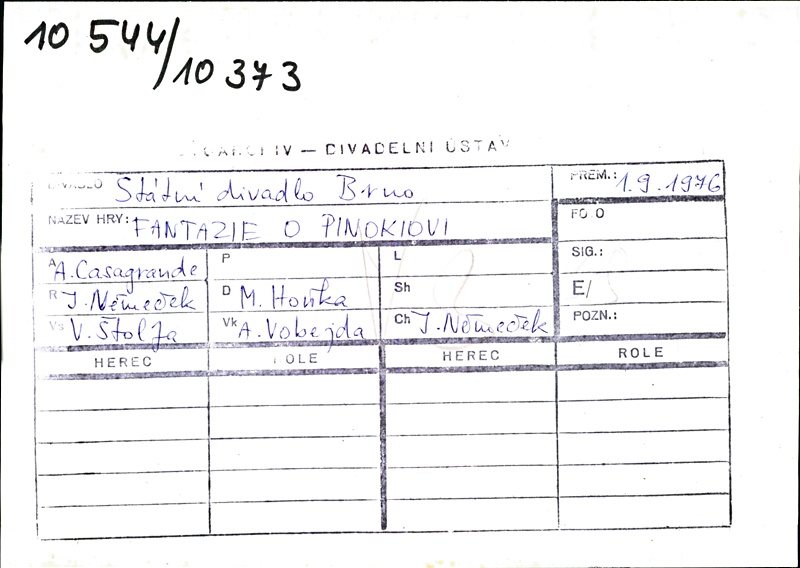 10 544/
10 373
— DIVADELNÍ ÚSTAV
DIVADLO Státní divadlo Brno PREM.: 1.9.1976
NÁZEV HRY: FANTAZIE O PINOKIOVI FOTO
A A. Casagrande P L SIG.:
R J. Němeček D M. Hoňka Sh E/
Vs V. Štolfa Vk A. Vobejda Ch J. Němeček POZN.:
HEREC ROLE HEREC ROLE